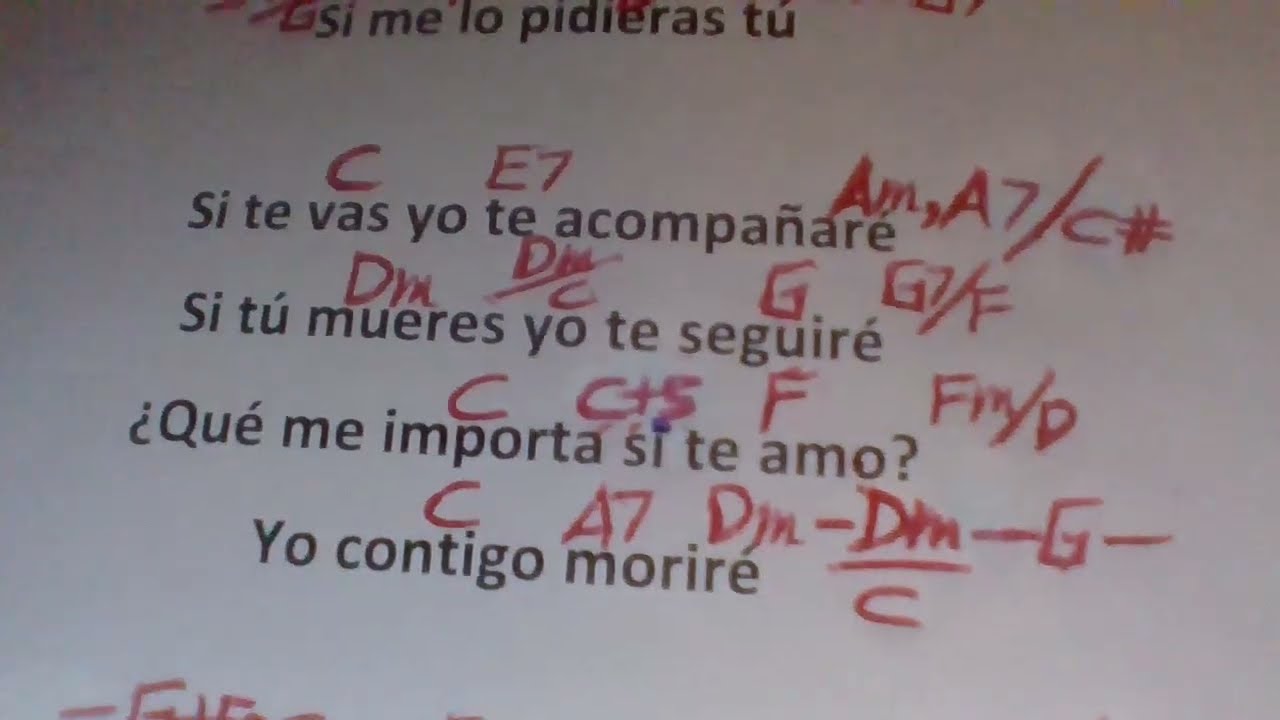 Si me lo pidieras tú
C E7 Am, A7/C#
Si te vas yo te acompañaré
Dm Dm/C G G7/F
Si tú mueres yo te seguiré
C C+5 F Fm/D
¿Qué me importa si te amo?
C A7 Dm - Dm/C - G -
Yo contigo moriré